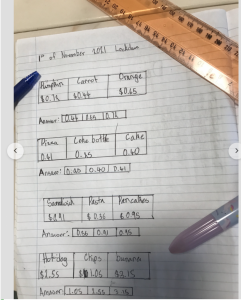 1st of November 2021 Lockdown
Pumpkin Carrot Orange
$0.76 $0.44 $0.65
Answer: 0.44 0.65 0.76
Pizza Coke bottle Cake
0.41 0.40
Answer: 0.40 0.41
Sandwich Pasta Pancakes
$0.91 $0.86 $0.95
Answer: 0.86 0.91 0.95
Hotdog Chips banana
$2.55 $1.05 $2.15
Answer: 1.05 2.55